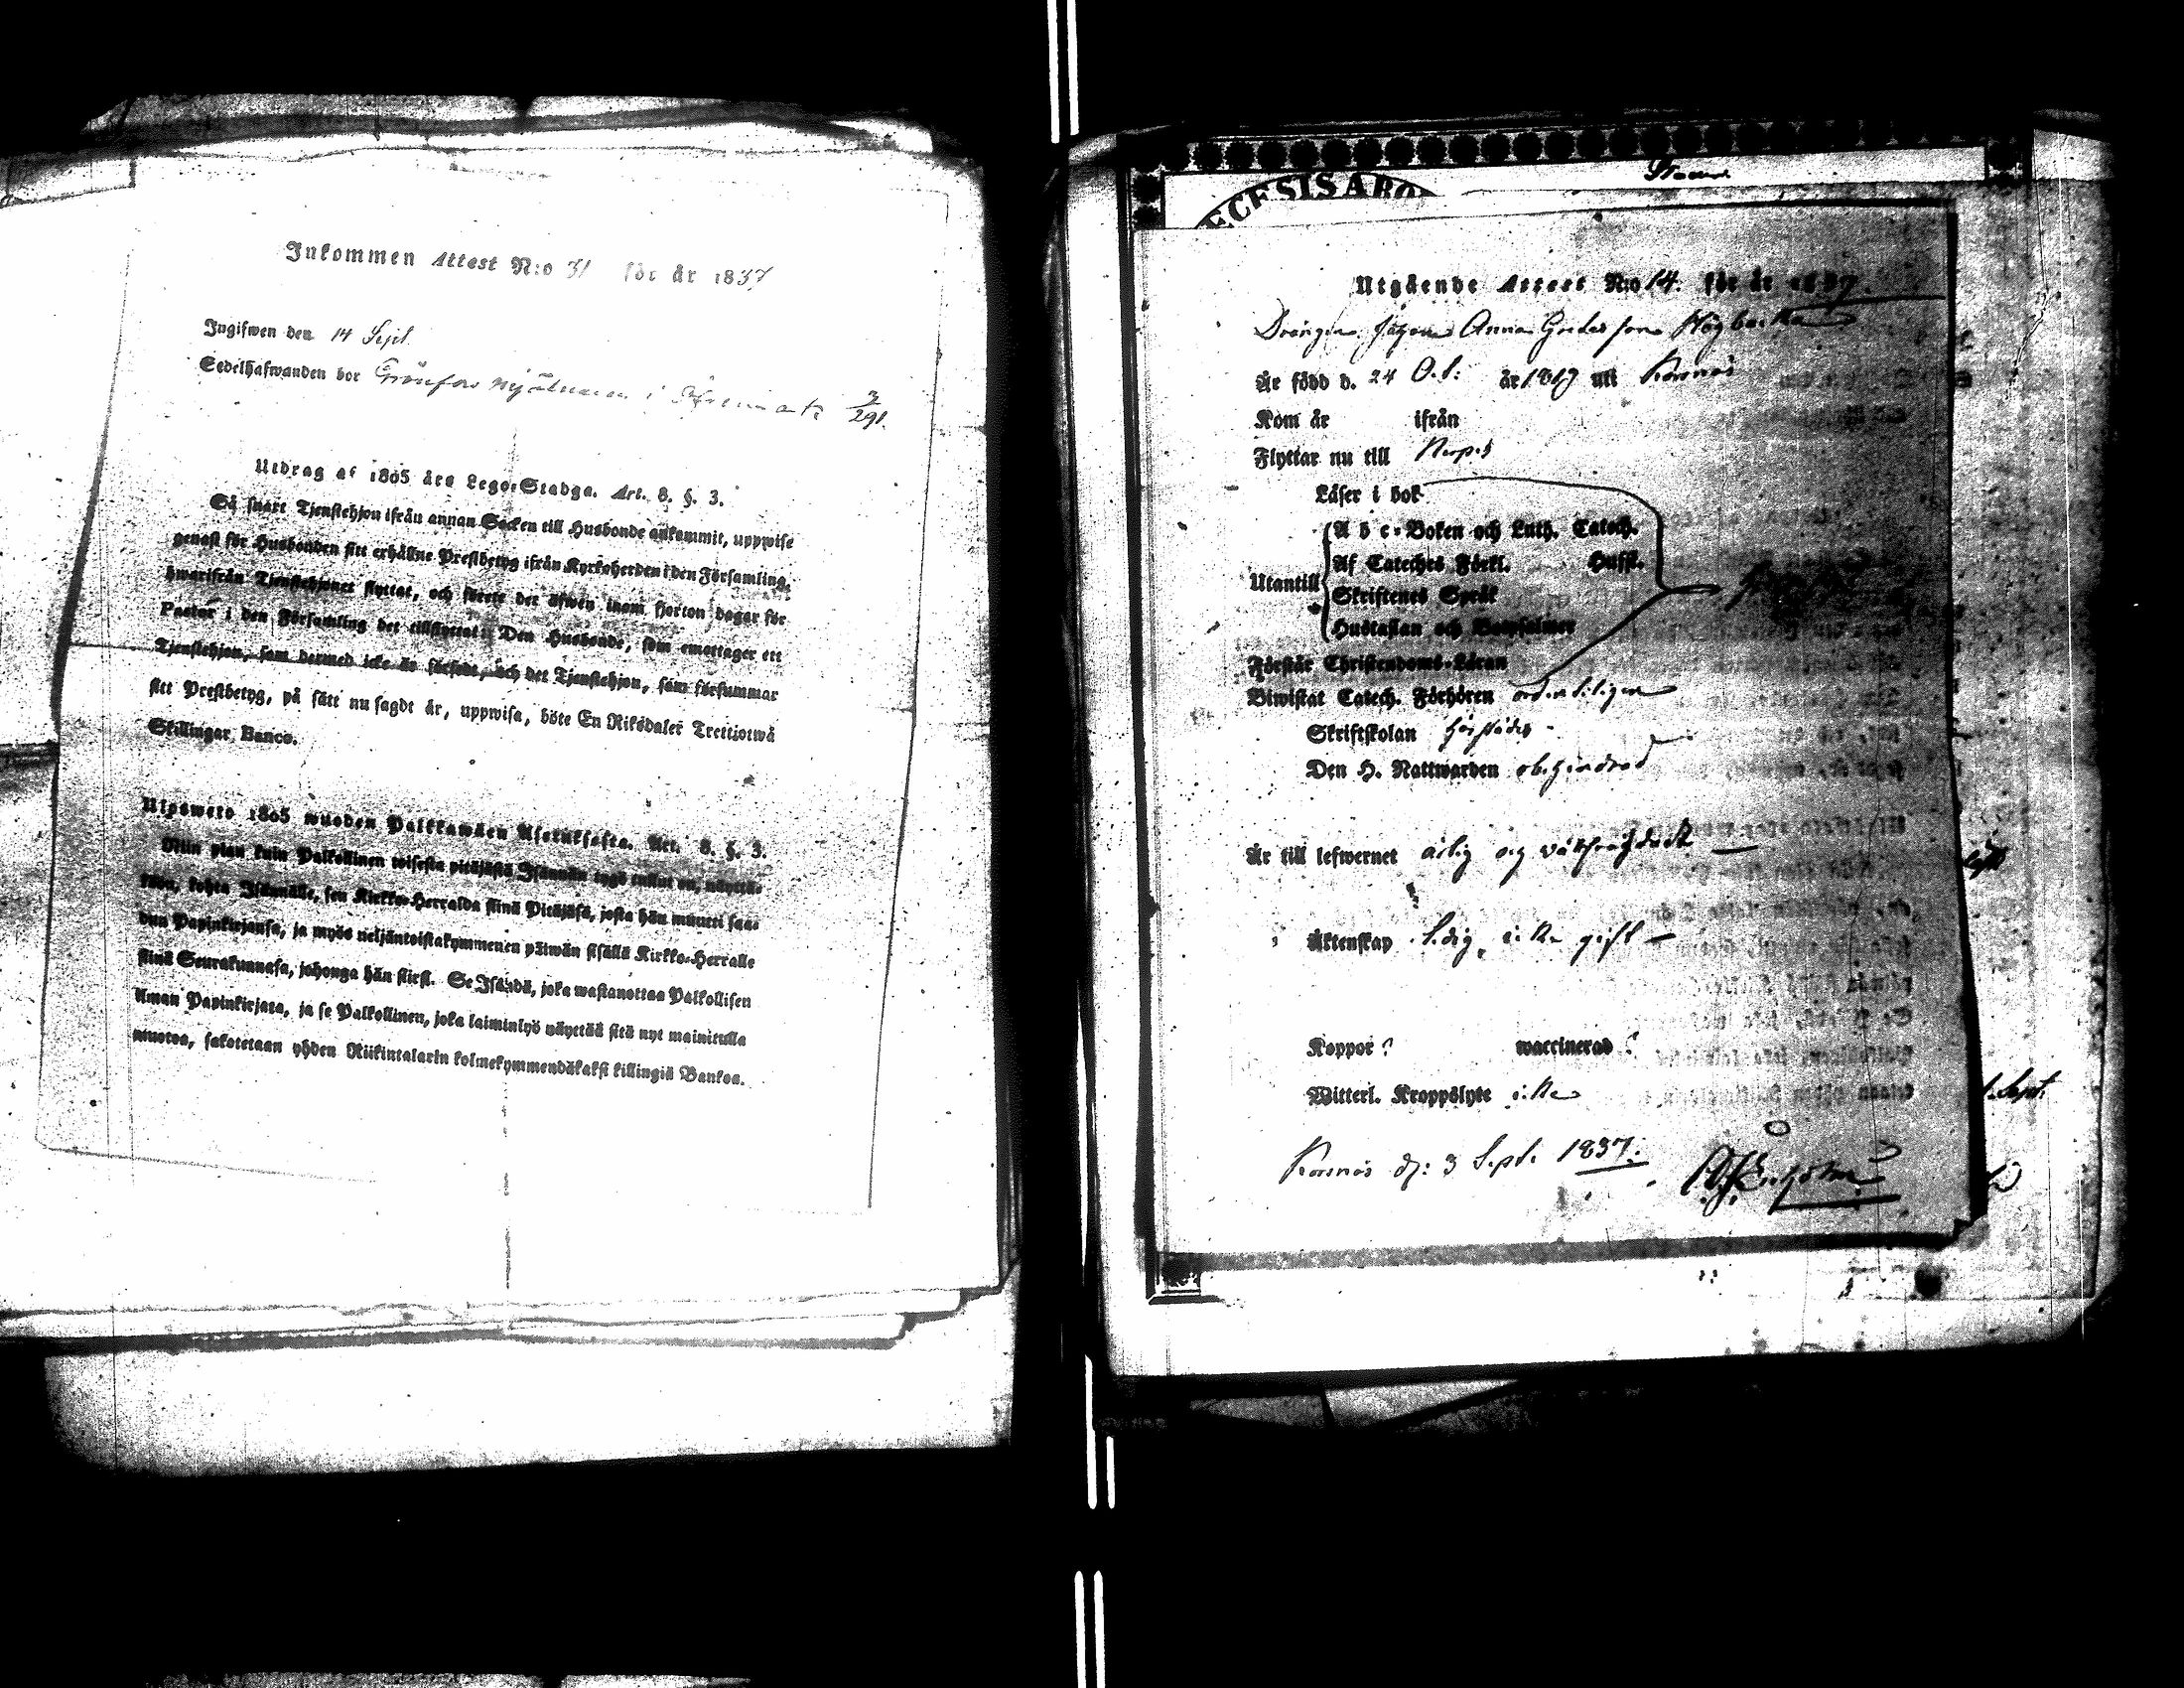 Inkommen Attest N:o 31 för år 1837
Ingifwen den 14 Sept.
Sedelhafwanden bor i
3/291.
Utdrag af 1805 års Lego-Stadga. Art. 8. §. 3.
Så snart Tjenstehjon ifrån annan Socken till Husbonde ankommit, uppwise
genast för Husbonden sitt erhållne Prestbetyg ifrån Kyrkoherden i den Församling,
hwarifrån Tjenstehjonet flyttat, och förete det äfwen inom fjorton dagar för
Pastor i den Församling det tillflyttat: Den Husbonde, som emottager ett
Tjenstehjon, som dermed icke är försedt, och det Tjenstehjon, som försummar
sitt Prestbetyg, på sätt nu sagdt är, uppwisa, böte En Riksdaler Trettiotwå
Skillingar Banco.
Ulpswero 1805 wuoden Palkkawäen Asetuksesta. Art. 8. §. 3.
Niin pian kuin Palkollinen toisesta pitäjästä Isännän tygö tullut on, näyttä-
köön, kohta Isännälle, sen Kirkko-Herralda siinä Pitäjäsä, josta hän muutti saa-
dun Papinkirjansa, ja myös neljäntoistakymmenen päiwän sisällä Kirkko-Herralle
siinä Seurakunnasa, johonga hän siirsi. Se Isändä, joka wastanottaa Palkollisen
ilman Papinkirjata, ja se Palkollinen, joka laiminlyö näyttää sitä nyt mainitulla
muotoa, sakotetaan yhden Riikintalarin kolmekymmendäkaksi killingiä Bankoa.
ECESIS ABO
Utgående Attest N:o 14. för år 1837.
Drängen Anna Gretas son
Är född d. 24 Oct: år 1817 uti Korsnäs
Kom år ifrån
Flyttar nu till Nerpes
Läser i bok
A b c-Boken och Luth. Catech.
Af Cateches Förkl. Hussl.
Utantill
Skriftenes Språk
Hustaflan och Botpsalmer
Förstår Christendoms-Läran
Biwistat Catech. Förhören ordenteligen
Skriftskolan
Den H. Nattwarden obehindrad
Är till lefwernet ärlig och
Äktenskap ledig, icke gift
Koppor? waccinerad?
Witterl. Kroppslyte icke
Korsnäs d: 3 Sept. 1837.
Sept.